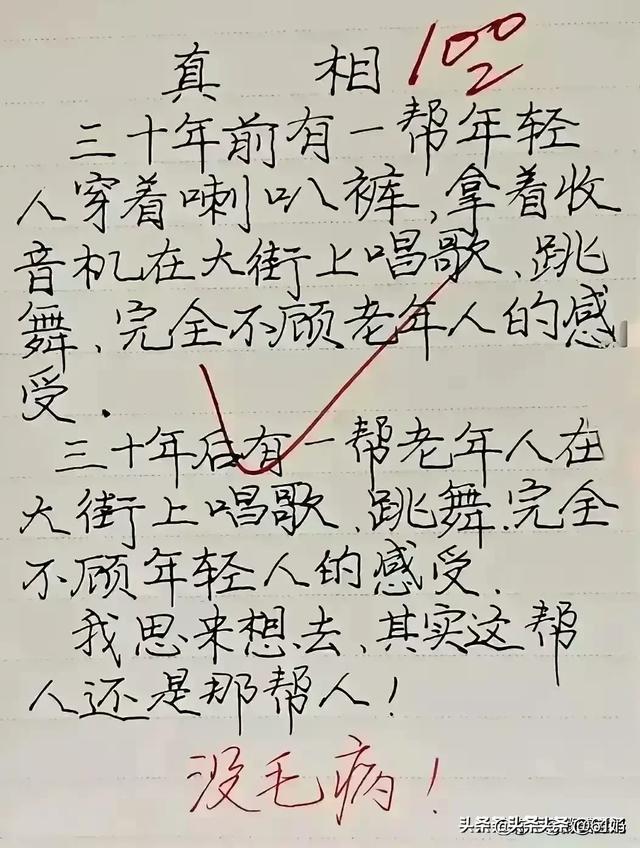 真 相 100
三十年前有一帮年轻
人穿着喇叭裤,拿着收
音机在大街上唱歌、跳
舞、完全不顾老年人的感
受.
三十年后有一帮老年人在
大街上唱歌、跳舞.完全
不顾年轻人的感受.
我思来想去、其实这帮
人还是那帮人!
没毛病!
头条